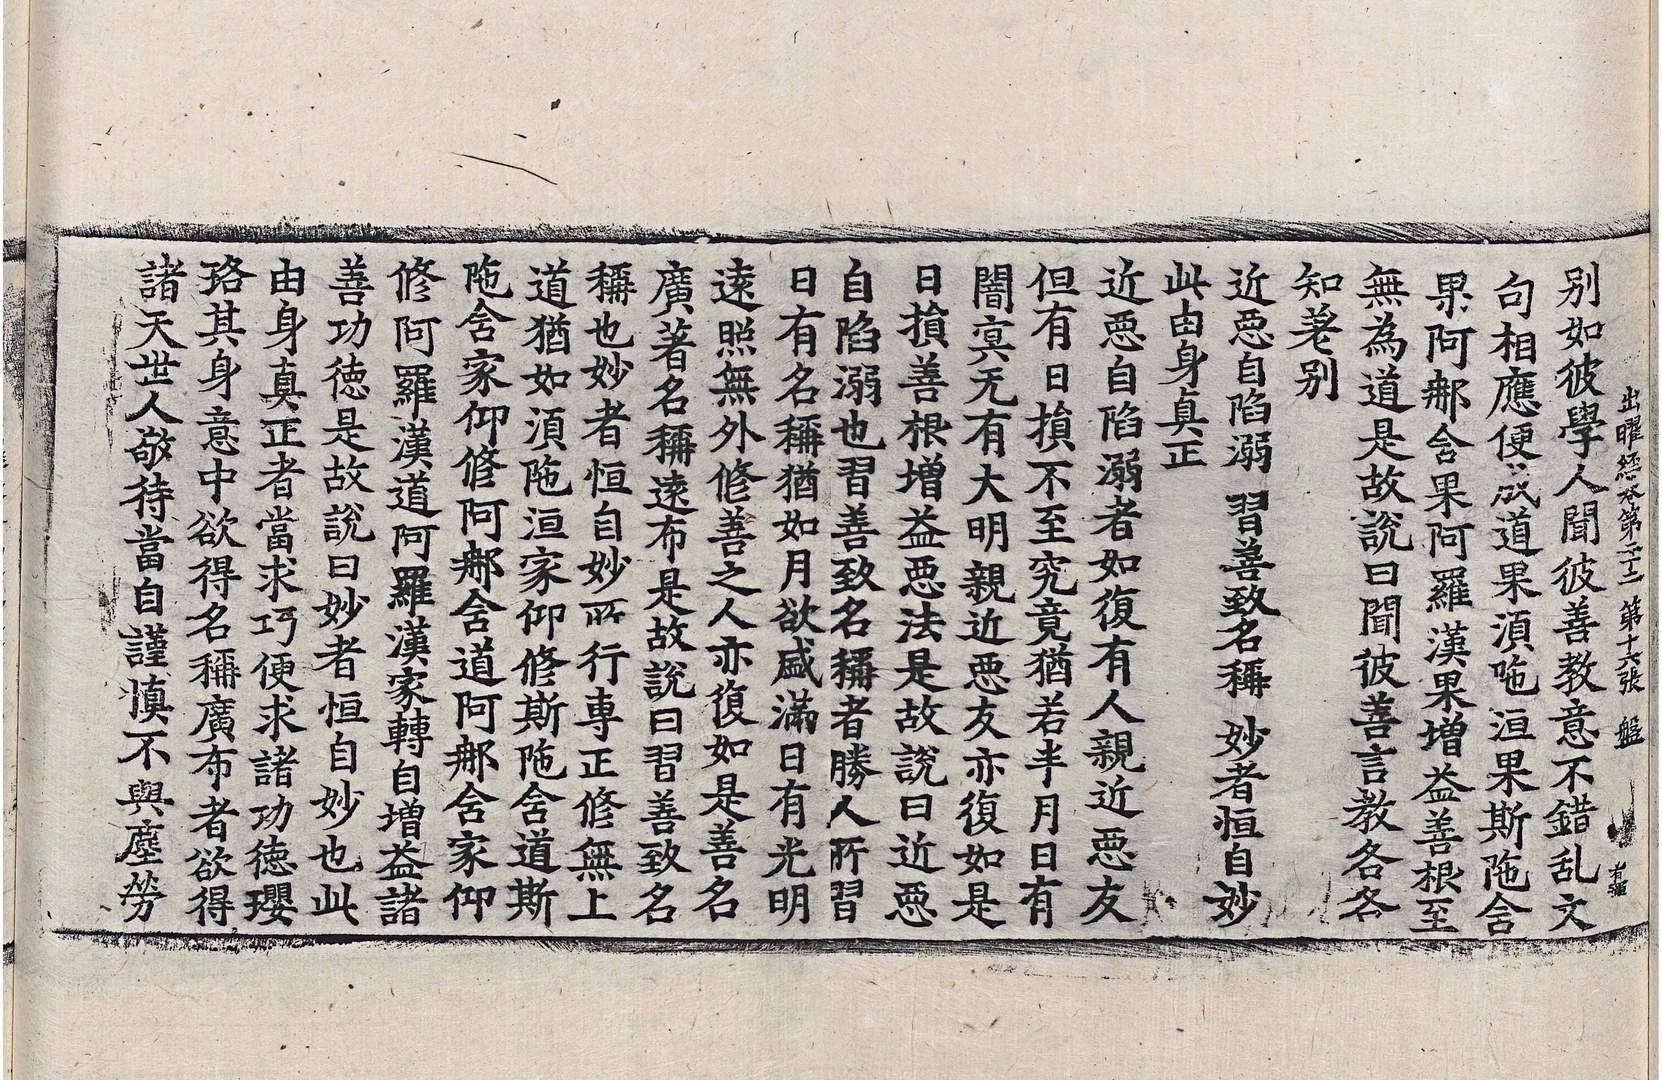 出曜經卷第二十二　第十六張　盤
有彊
別如彼學人聞彼善教意不錯乱文
句相應便成道果湏陁洹果斯陁含
果阿𨚗含果阿羅漢果增益善根至
無為道是故說曰聞彼善言教各各
知差別
近惡自陷溺　習善致名稱　妙者恒自妙
此由身真正
近惡自陷溺者如復有人親近惡友
但有日損不至究竟猶若半月日有
闇㝠无有大明親近惡友亦復如是
日損善根增益惡法是故說曰近惡
自陷溺也習善致名稱者勝人所習
日有名稱猶如月欲盛滿日有光明
遠照無外修善之人亦復如是善名
廣著名稱遠布是故說曰習善致名
稱也妙者恒自妙所行専正修無上
道猶如湏陁洹家仰修斯陁含道斯
陁含家仰修阿𨚗含道阿𨚗含家仰
修阿羅漢道阿羅漢家轉自增益諸
善功徳是故說曰妙者恒自妙也此
由身真正者當求巧便求諸功徳瓔
珞其身意中欲得名稱廣布者欲得
諸天世人敬待當自謹慎不與塵勞